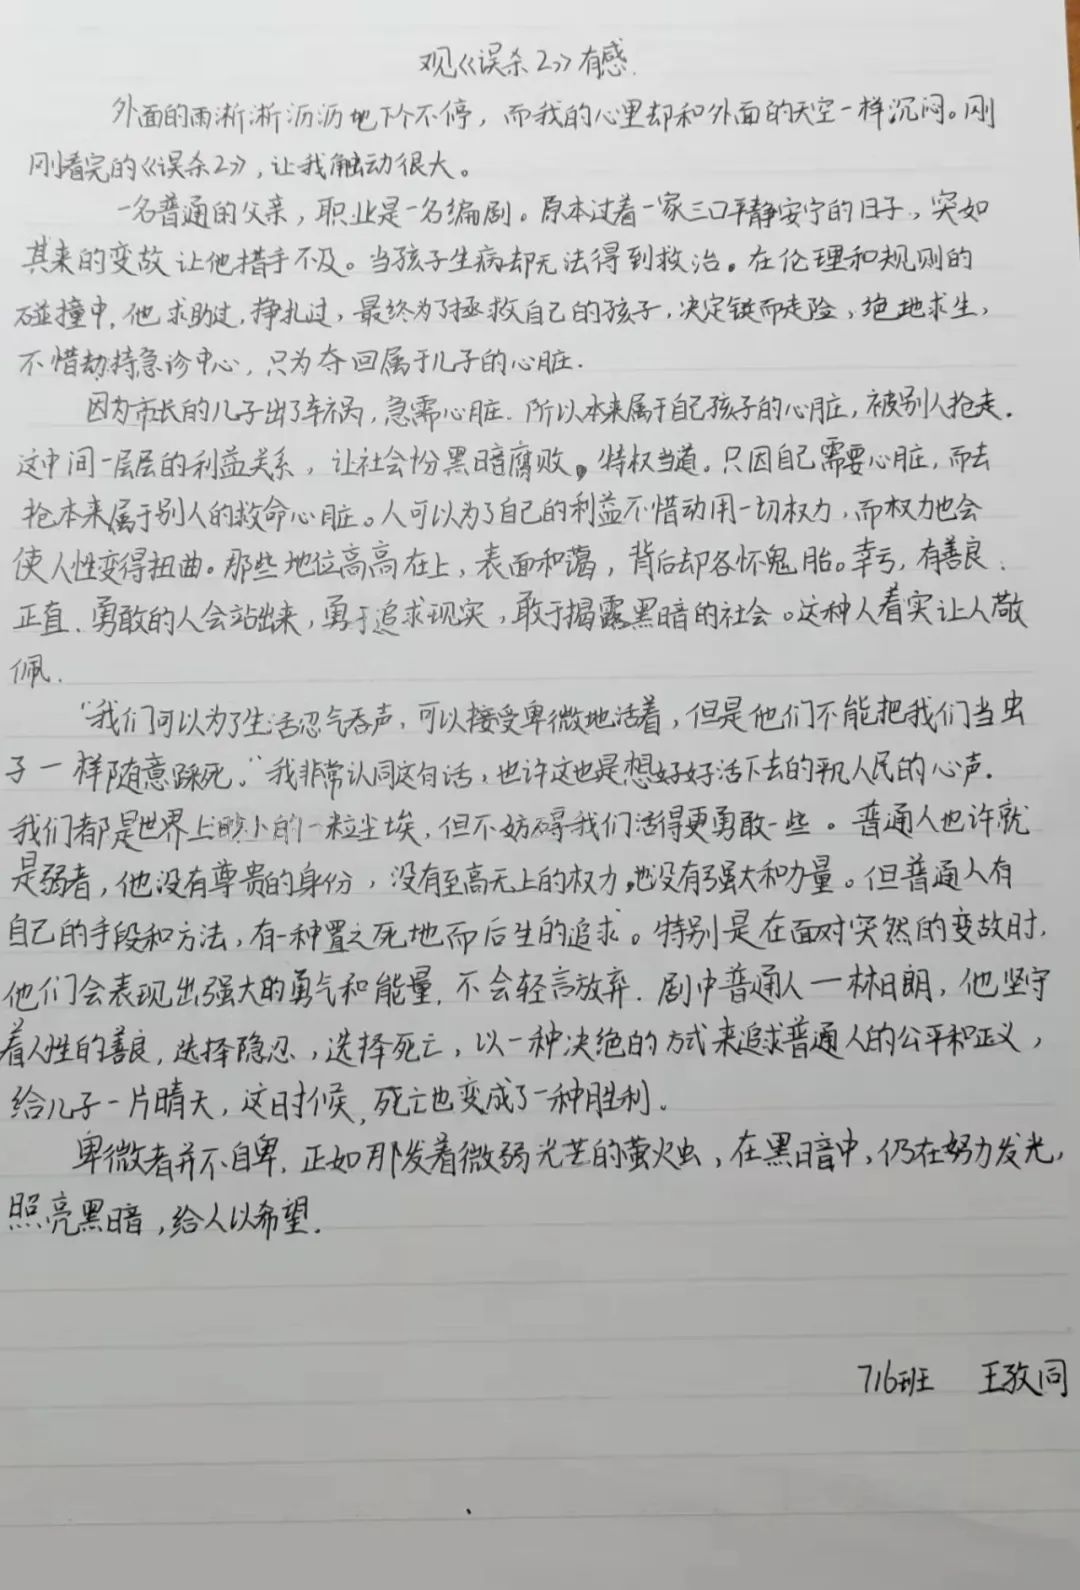 观《误杀2》有感.
外面的雨淅淅沥沥地下个不停，而我的心里却和外面的天空一样沉闷。刚
刚看完的《误杀2》，让我触动很大。
一名普通的父亲，职业是一名编剧。原本过着一家三口平静安宁的日子，突如
其来的变故让他措手不及。当孩子生病却无法得到救治。在伦理和规则的
碰撞中，他求助过，挣扎过，最终为了拯救自己的孩子，决定铤而走险，绝地求生，
不惜劫持急诊中心，只为夺回属于儿子的心脏.
因为市长的儿子出了车祸，急需心脏.所以本来属于自己孩子的心脏，被别人抢走.
这中间一层层的利益关系，让社会份黑暗腐败。特权当道。只因自己需要心脏，而去
抢本来属于别人的救命心脏。人可以为了自己的利益不惜动用一切权力，而权力也会
使人性变得扭曲。那些地位高高在上，表面和蔼，背后却各怀鬼胎。幸亏，有善良、
正直、勇敢的人会站出来，勇于追求现实，敢于揭露黑暗的社会。这种人着实让人敬
佩.
“我们可以为了生活忍气吞声，可以接受卑微地活着，但是他们不能把我们当虫
子一样随意踩死。”我非常认同这句话，也许这也是想好好活下去的平凡人民的心声.
我们都是世界上渺小的一粒尘埃，但不妨碍我们活得更勇敢一些。普通人也许就
是弱者，他没有尊贵的身份，没有至高无上的权力，也没有强大和力量。但普通人有
自己的手段和方法，有一种置之死地而后生的追求。特别是在面对突然的变故时，
他们会表现出强大的勇气和能量，不会轻言放弃.剧中普通人一林日朗，他坚守
着人性的善良，选择隐忍，选择死亡，以一种决绝的方式来追求普通人的公平和正义，
给儿子一片晴天，这时候，死亡也变成了一种胜利。
卑微者并不自卑，正如那发着微弱光芒的萤火虫，在黑暗中，仍在努力发光，
照亮黑暗，给人以希望.
716班 王孜同